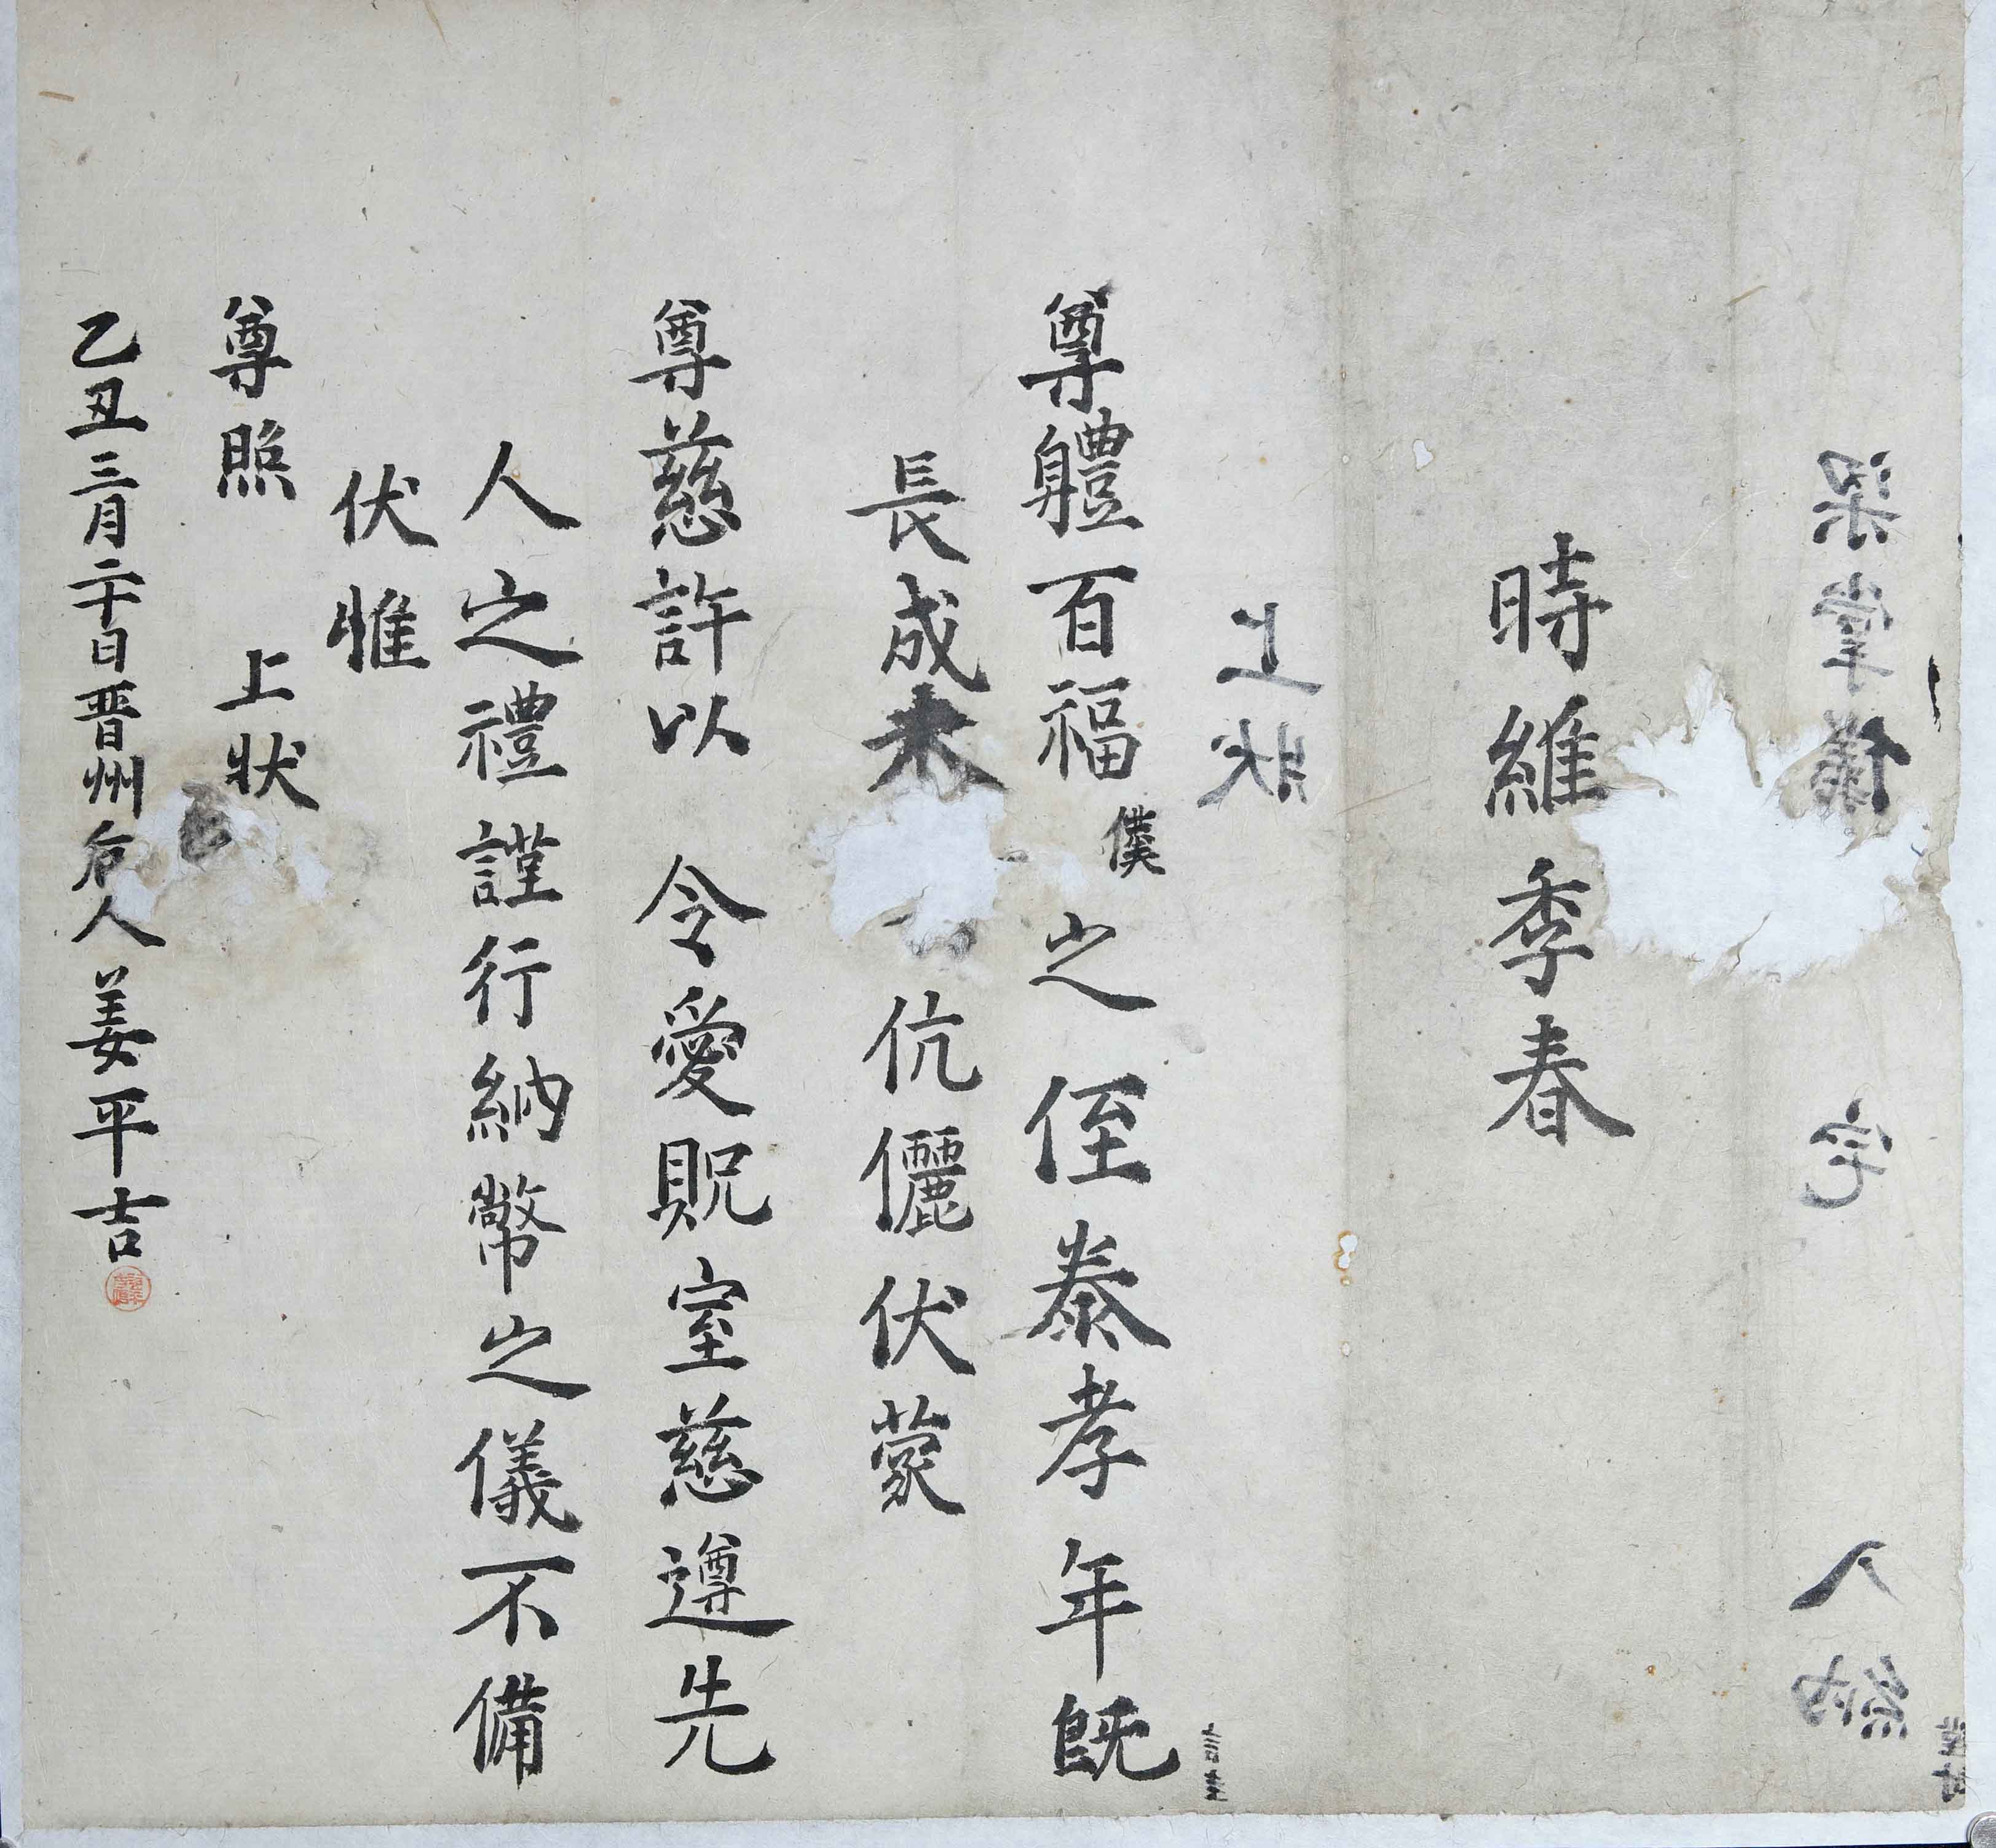 梁掌儀 宅 入納
時維季春
上狀
尊體百福僕之侄泰孝年既
長成未 伉儷伏蒙
尊慈許以 令愛貺室慈遵先
人之禮謹行納幣之儀不備
伏惟
尊照 上狀
乙丑三月二十日晋州后人姜平吉